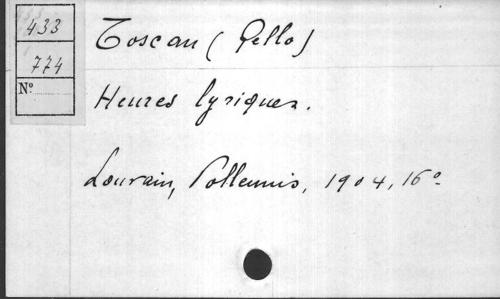 433
774
N°
Toscan (Gello)
Heures lyriques.
Louvain, Polleunis, 1904, 16°